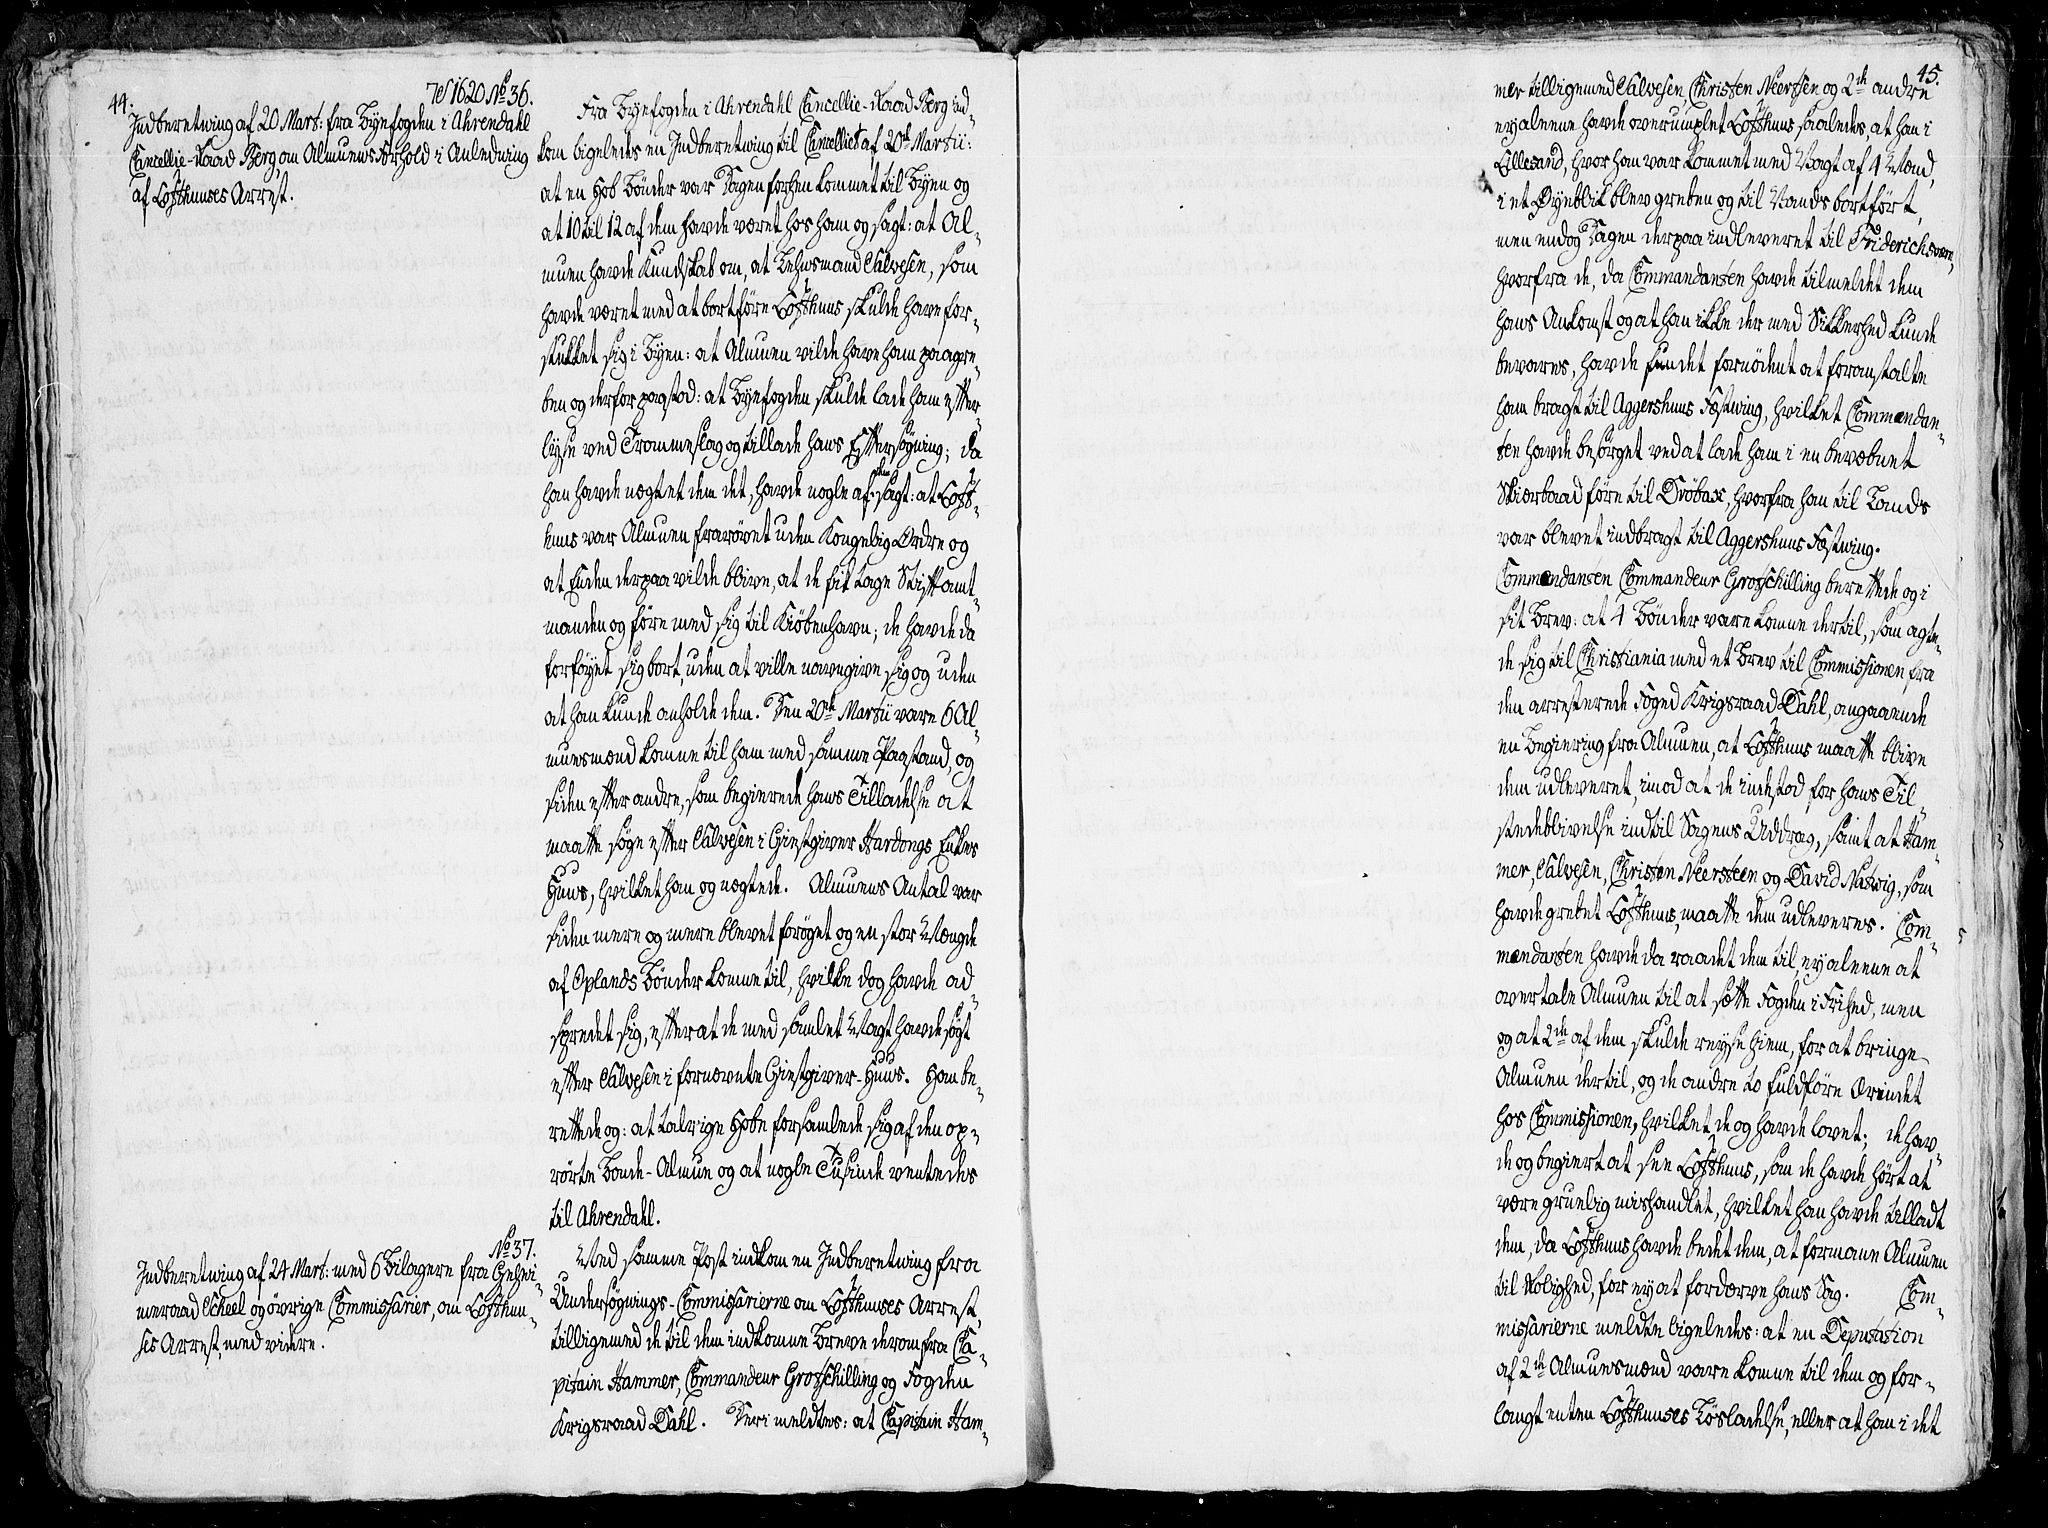 44.
7A 1620 No 36.
Indberetning af 20 Mart: fra Byefogden i Ahrendahl
Cancellie-Raad Berg, om Almuens Forhold i Anledning
af Lofthuuses Arrest.
Fra Byefogden i Ahrendahl Cancellie-Raad Berg ind-
kom ligeledes en Indberetning til Cancelliet af 20de Martii:
at en Hob Bønder var Dagen forhen kommet til Byen og
at 10 til 12 af dem havde været hos ham og sagt: at Al-
muen havde Kundskab om, at Lehnsmand Salvesen, som
havde været med at bortføre Lofthuus skulde have for-
stukket sig i Byen: at Almuen vilde have ham paagre-
ben og derfor paastod: at Byefogden skulde lade ham efter-
lyse ved Trommeslag og tillade hans Eftersøgning; da
han havde nægtet dem det, havde nogle af dem sagt: at Loft-
huus var Almuen frarøvet uden Kongelig Ordre og
at Enden derpaa vilde blive, at de fik tage Stiftamt-
manden og føre med sig til Kiøbenhavn; de havde da
forføyet sig bort, uden at ville navngive sig og uden
at han kunde anholde dem. Den 20de Martii vare 6 Al-
muesmænd komne til ham med samme Paastand, og
siden efter andre, som begierede hans Tilladelse at
maatte søge efter Salvesen i Giestgiver Hardongs Enkes
Huus, hvilket han og nægtede. Almuens Antal var
siden mere og mere blevet forøget og en stor Mængde
af Oplands Bønder komne til, hvilke dog havde ad-
spredet sig, efterat de med samlet Magt havde søgt
efter Salvesen i fornævnte Giestgiver-Huus. Han be-
rettede og: at talrige Hobe forsamlede sig af den op-
rørte Bonde-Almue og at nogle Tusinde ventedes
til Ahrendahl.
No 37.
Indberetning af 24 Mart: med 6 Bilagere fra Gehei-
meraad Scheel og øvrige Commissarier, om Lofthuu-
ses Arrest, med videre.
Med samme Post indkom en Indberetning fra
Undersøgnings-Commissarierne om Lofthuuses Arrest,
tilligemed de til dem indkomne Breve derom fra Ca-
pitain Hammer, Commandeur Grosschilling og Fogden
Krigsraad Dahl. Deri meldtes: at Capitain Ham-
45.
mer tilligemed Salvesen, Christen Neersteen og 2de andre
ey alleene havde overrumplet Lofthuus saaledes, at han i
Lillesand, hvor han var kommet med Vagt af 4 Mænd,
i et Øyeblik blev greben og til Vands bortført,
men endog Dagen derpaa indleveret til Friderichsværn,
hvorfra de, da Commandanten havde tilmeldet dem
hans Ankomst og at han ikke der med Sikkerhed kunde
bevares, havde fundet fornødent at foranstalte
ham bragt til Aggershuus Fæstning, hvilket Commendan-
ten havde besørget ved at lade ham i en bevæbnet
Skiærbaad føre til Drøbak, hvorfra han til Lands
var blevet indbragt til Aggershuus Fæstning.
Commendanten Commandeur Grosschilling berettede og i
sit Brev: at 4 Bønder vare komne dertil, som agte-
de sig til Christiania med et Brev til Commissionen fra
den arresterede Foged Krigsraad Dahl, angaaende
en Begiering fra Almuen, at Lofthuus maatte blive
dem udleveret, imod at de indestod for hans Til-
stedeblivelse indtil Sagens Uddrag, samt at Ham-
mer, Salvesen, Christen Neersteen og David Natvig, som
havde grebet Lofthuus, maatte dem udleveres. Com-
mendanten havde da raadet dem til, ey alleene at
overtale Almuen til at sætte Fogden i Frihed, men
og at 2de af dem skulde reyse hiem, for at bringe
Almuen dertil, og de andre to fuldføre Ærindet
hos Commissionen, hvilket de og havde lovet; de hav-
de og begiert at see Lofthuus, som de havde hørt at
være gruelig mishandlet, hvilket han havde tilladt
dem, da Lofthuus havde bedet dem, at formane Almuen
til Rolighed, for ey at fordærve hans Sag. Com-
missarierne meldte ligeledes: at en Deputation
af 2de Almuesmænd vare komne til dem og for-
langt enten Lofthuuses Løsladelse, eller at han i det